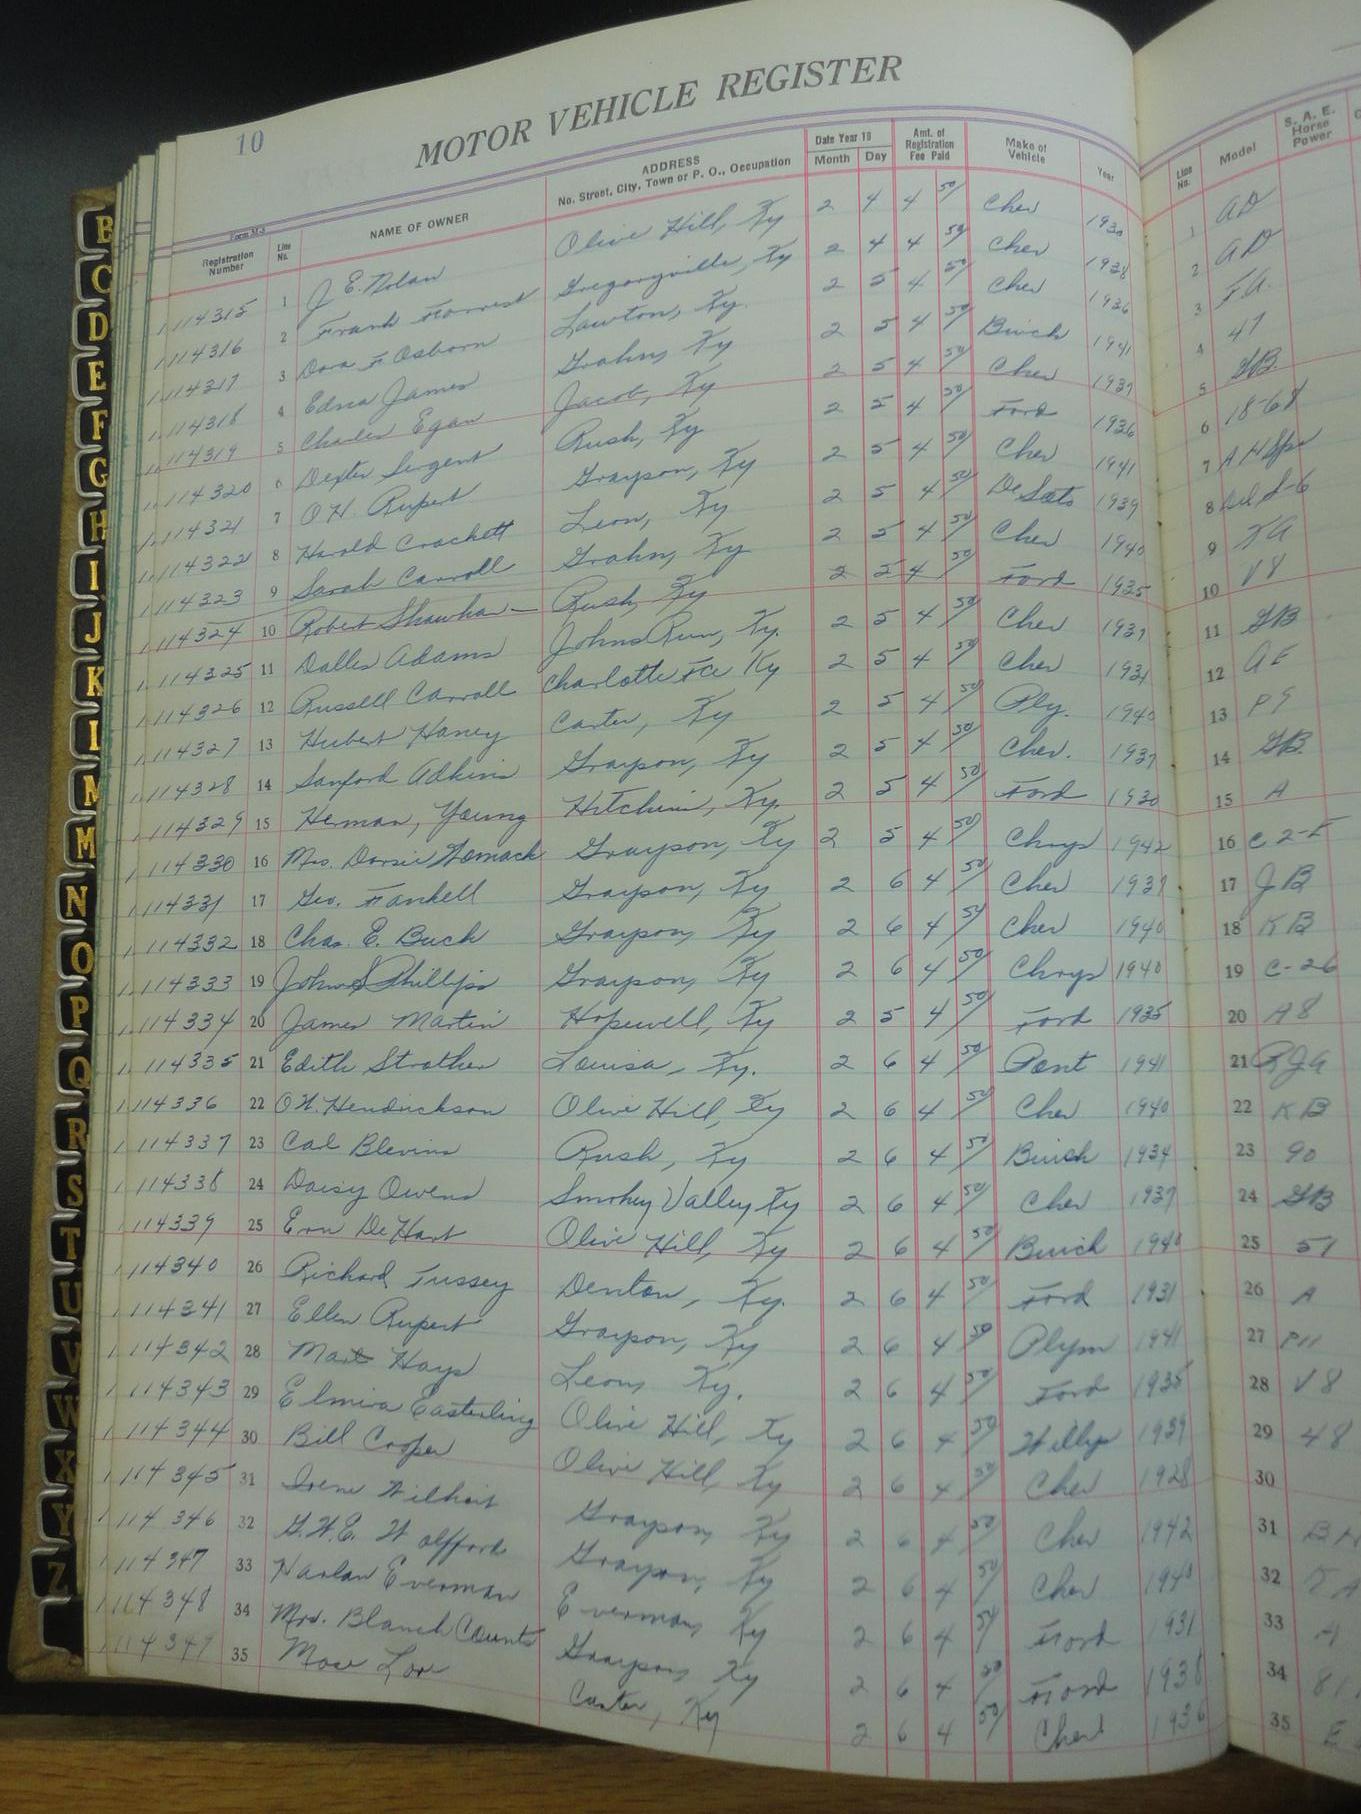 10
MOTOR VEHICLE REGISTER
Form M-3
Registration Number Line No. NAME OF OWNER ADDRESS No. Street, City, Town or P. O., Occupation Date Year 19 Month Day Amt. of Registration Fee Paid Make of Vehicle Year Line No. Model S. A. E. Horse Power
114315 1 J. E. Nolan Olive Hill, Ky 2 4 4 50 Chev 1930 1 AD
114316 2 Frank Forrest Gregoryville, Ky 2 4 4 50 Chev 1938 2 AD
114317 3 Dora F Osborn Lawton, Ky. 2 5 4 50 Chev 1936 3 FA.
114318 4 Edna James Grahn, Ky 2 5 4 50 Buick 1941 4 47
114319 5 Charles Egan Jacob, Ky 2 5 4 50 Chev 1937 5 GB.
114320 6 Dexter Sergent Rush, Ky 2 5 4 50 Ford 1936 6 18-68
114321 7 O H. Rupert Grayson, Ky 2 5 4 50 Chev 1941 7 A H
114322 8 Harold Crockett Leon, Ky 2 5 4 50 De Soto 1939 8 S-6
114323 9 Sarah Carroll Grahn, Ky 2 5 4 50 Chev 1940 9 KA
114324 10 Robert Rush, Ky 2 5 4 50 Ford 1935 10 V8
114325 11 Dallas Adams Johns Run, Ky. 2 5 4 50 Chev 1937 11 GB
114326 12 Russell Carroll Charlotte Fce Ky 2 5 4 50 Chev 1931 12 AE
114327 13 Hubert Haney Carter, Ky 2 5 4 50 Ply. 1940 13 P9
114328 14 Sanford Adkins Grayson, Ky 2 5 4 50 Chev. 1937 14 GB.
114329 15 Herman, Young Hitchins, Ky. 2 5 4 50 Ford 1930 15 A
114330 16 Mrs. Dorsie Womack Grayson, Ky 2 5 4 50 Chrys 1942 16 C 2-
114331 17 Geo. Fankell Grayson, Ky 2 6 4 50 Chev 1939 17 JB
114332 18 Chas. E. Buck Grayson, Ky 2 6 4 50 Chev 1940 18 KB
114333 19 John S Phillips Grayson, Ky 2 6 4 50 Chrys 1940 19 C-26
114334 20 James Martin Hopewell, Ky 2 5 4 50 Ford 1935 20 A8
114335 21 Edith Strother Louisa, Ky. 2 6 4 50 Pont 1941 21
114336 22 O.W. Hendrickson Olive Hill, Ky 2 6 4 50 Chev 1940 22 KB
114337 23 Cal Blevins Rush, Ky 2 6 4 50 Buick 1934 23 90
114338 24 Daisy Owens Smokey Valley, Ky 2 6 4 50 Chev 1937 24 GB
114339 25 Ern DeHart Olive Hill, Ky 2 6 4 50 Buick 1940 25 51
114340 26 Richard Tussey Denton, Ky. 2 6 4 50 Ford 1931 26 A
114341 27 Ellen Rupert Grayson, Ky 2 6 4 50 Plym 1941 27 P11
114342 28 Mart Hays Leon, Ky. 2 6 4 50 Ford 1935 28 V8
114343 29 Elmira Easterling Olive Hill, Ky 2 6 4 50 Willys 1939 29 48
114344 30 Bill Cooper Olive Hill, Ky 2 6 4 50 Chev 1928 30
114345 31 Irene Wilhoit Grayson, Ky 2 6 4 50 Chev 1942 31 B
114346 32 G.W.E. Wolfford Grayson, Ky 2 6 4 50 Chev 1940 32 KA
114347 33 Harlan Everman Everman, Ky 2 6 4 50 Ford 1931 33 A
114348 34 Mrs. Blanch Counts Grayson, Ky 2 6 4 50 Ford 1938 34 81
114349 35 Mose Carter, Ky 2 6 4 50 Chev 1936 35
B
C
D
E
F
G
H
I
J
K
M
N
O
P
Q
R
S
T
U
V
W
X
Y
Z